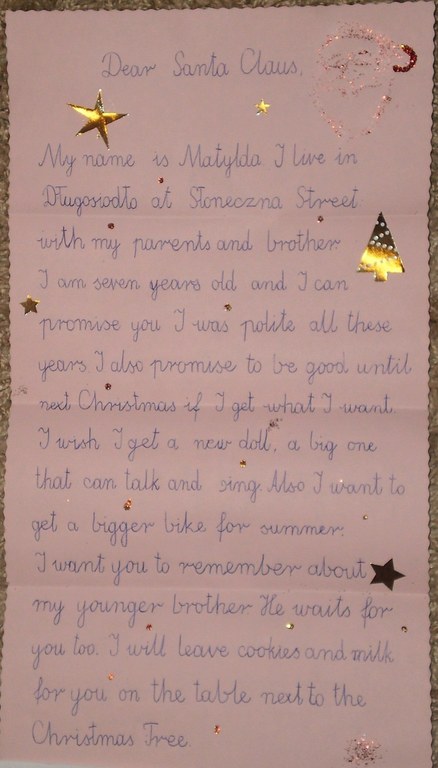 Dear Santa Claus,
My name is Matylda I live in
Długosiodło at Słoneczna Street
with my parents and brother
I am seven years old and I can
promise you I was polite all these
years. I also promise to be good until
next Christmas if I get what I want.
I wish I get a new doll, a big one
that can talk and sing. Also I want to
get a bigger bike for summer.
I want you to remember about
my younger brother He waits for
you too. I will leave cookies and milk
for you on the table next to the
Christmas Tree.